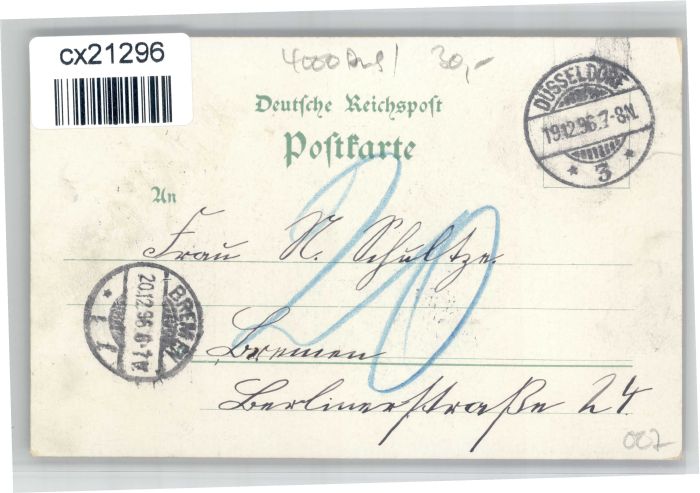 cx21296
4000 Düs / 30,-
Deutsche Reichspost
Postkarte
DÜSSELDORF
19.12.96.7-8N.
* 3 *
An
20
Frau N. Schultze.
BREMEN
20.12.96.6-7V.
* 1 1
Bremen
Berlinerstraße 24
007